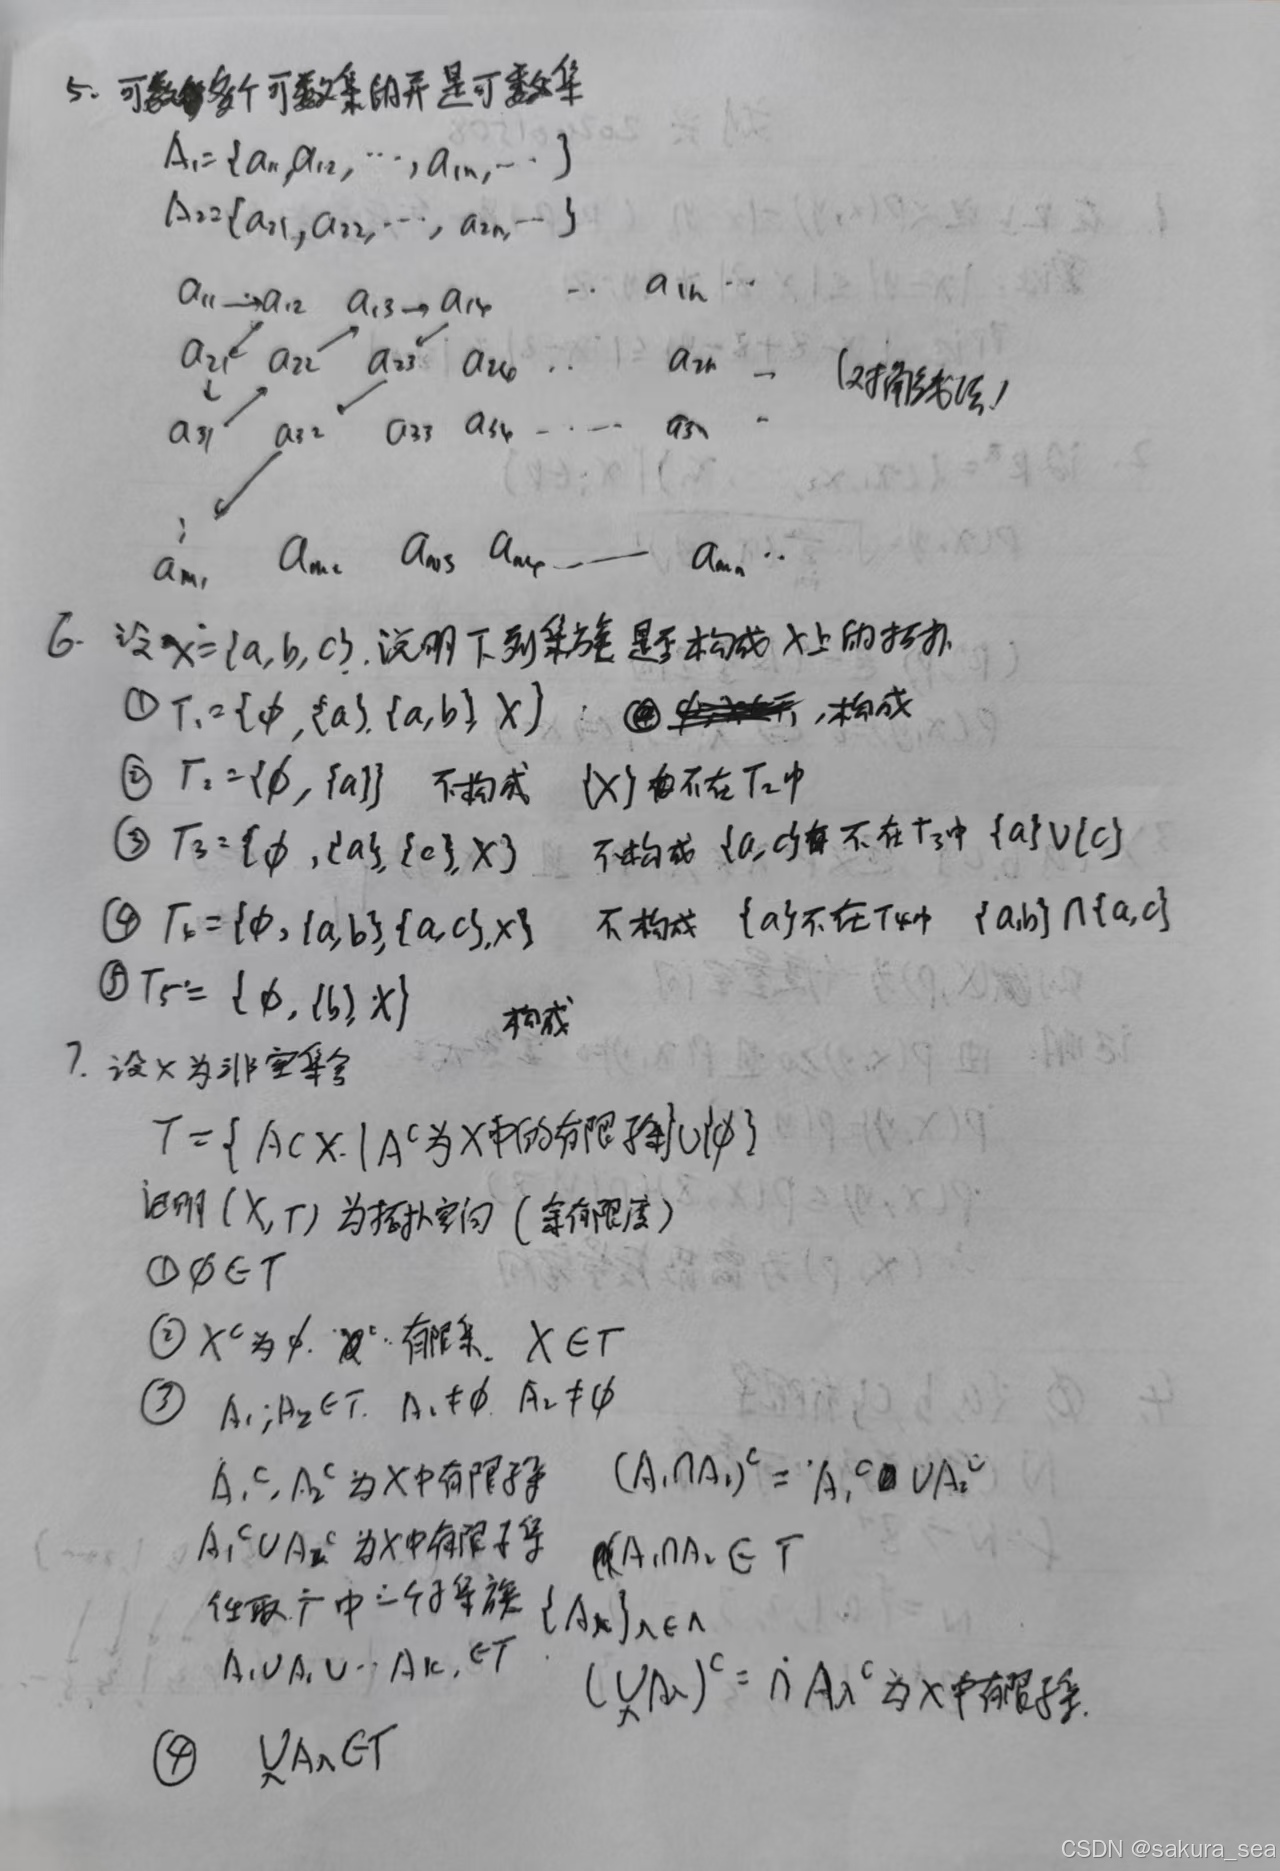 5. 可数多个可数集的并是可数集
A₁={a₁₁,a₁₂,…,a₁ₙ,…}
A₂={a₂₁,a₂₂,…,a₂ₙ,…}
a₁₁→a₁₂ a₁₃→a₁₄ … a₁ₙ …
a₂₁ a₂₂ a₂₃ a₂₄ … a₂ₙ …
(对角线法)
a₃₁ a₃₂ a₃₃ a₃₄ …… a₃ₙ
aₘ₁ aₘ₂ aₘ₃ aₘ₄ —— aₘₙ …
6. 设X={a,b,c}.说明下列集族是否构成X上的拓扑
① T₁={φ,{a},{a,b},X} ,构成
② T₂={φ,{a}} 不构成 {X}不在T₂中
③ T₃={φ,{a},{c},X} 不构成 {a,c}不在T₃中 {a}∪{c}
④ T₄={φ,{a,b},{a,c},X} 不构成 {a}不在T₄中 {a,b}∩{a,c}
⑤ T₅={φ,{b},X} 构成
7. 设X为非空集合
T={A⊂X.|Aᶜ为X中的有限子集}∪{φ}
证明(X,T)为拓扑空间(余有限度)
① φ∈T
② Xᶜ为φ. 有限集. X∈T
③ A₁,A₂∈T. A₁≠φ. A₂≠φ
A₁ᶜ,A₂ᶜ为X中有限子集 (A₁∩A₂)ᶜ=A₁ᶜ∪A₂ᶜ
A₁ᶜ∪A₂ᶜ为X中有限子集 A₁∩A₂∈T
任取T中一个子集族{Aλ}λ∈Λ
A₁∪A₂∪…Aₖ,∈T (∪Aλ)ᶜ=∩Aλᶜ为X中有限子集.
④ ∪Aλ∈T
CSDN @sakura_sea